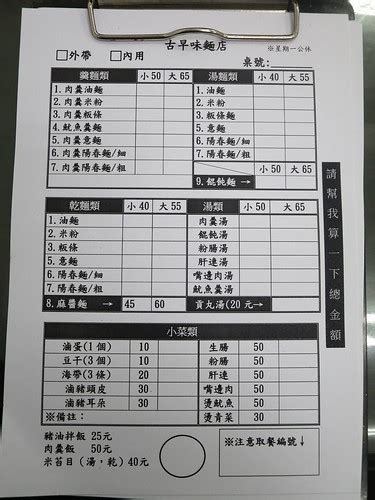 古早味麵店
※星期一公休
□外帶 □內用
桌號:
羹麵類 小 50 大 65
1.肉羹油麵
2.肉羹米粉
3.肉羹粄條
4.魷魚羹麵
5.肉羹意麵
6.肉羹陽春麵/細
7.肉羹陽春麵/粗
湯麵類 小 40 大 55
1.油麵
2.米粉
3.粄條
5.意麵
6.陽春麵/細
7.陽春麵/粗
小 50 大 65
9.餛飩麵→
乾麵類 小 40 大 55
1.油麵
2.米粉
3.粄條
5.意麵
6.陽春麵/細
7.陽春麵/粗
8.麻醬麵 45 60
湯類 小 50 大 65
肉羹湯
餛飩湯
粉腸湯
肝連湯
嘴邊肉湯
魷魚羹湯
貢丸湯(20 元→
請幫我算一下總金額
小菜類
滷蛋(1 個) 10 生腸 50
豆干(3 個) 10 粉腸 50
海帶(3 條) 20 肝連 50
滷豬頭皮 30 嘴邊肉 50
滷豬耳朵 30 燙魷魚 50
※備註: 燙青菜 30
豬油拌飯 25元
肉羹飯 50元
米苔目(湯,乾)40元
※注意取餐編號↓